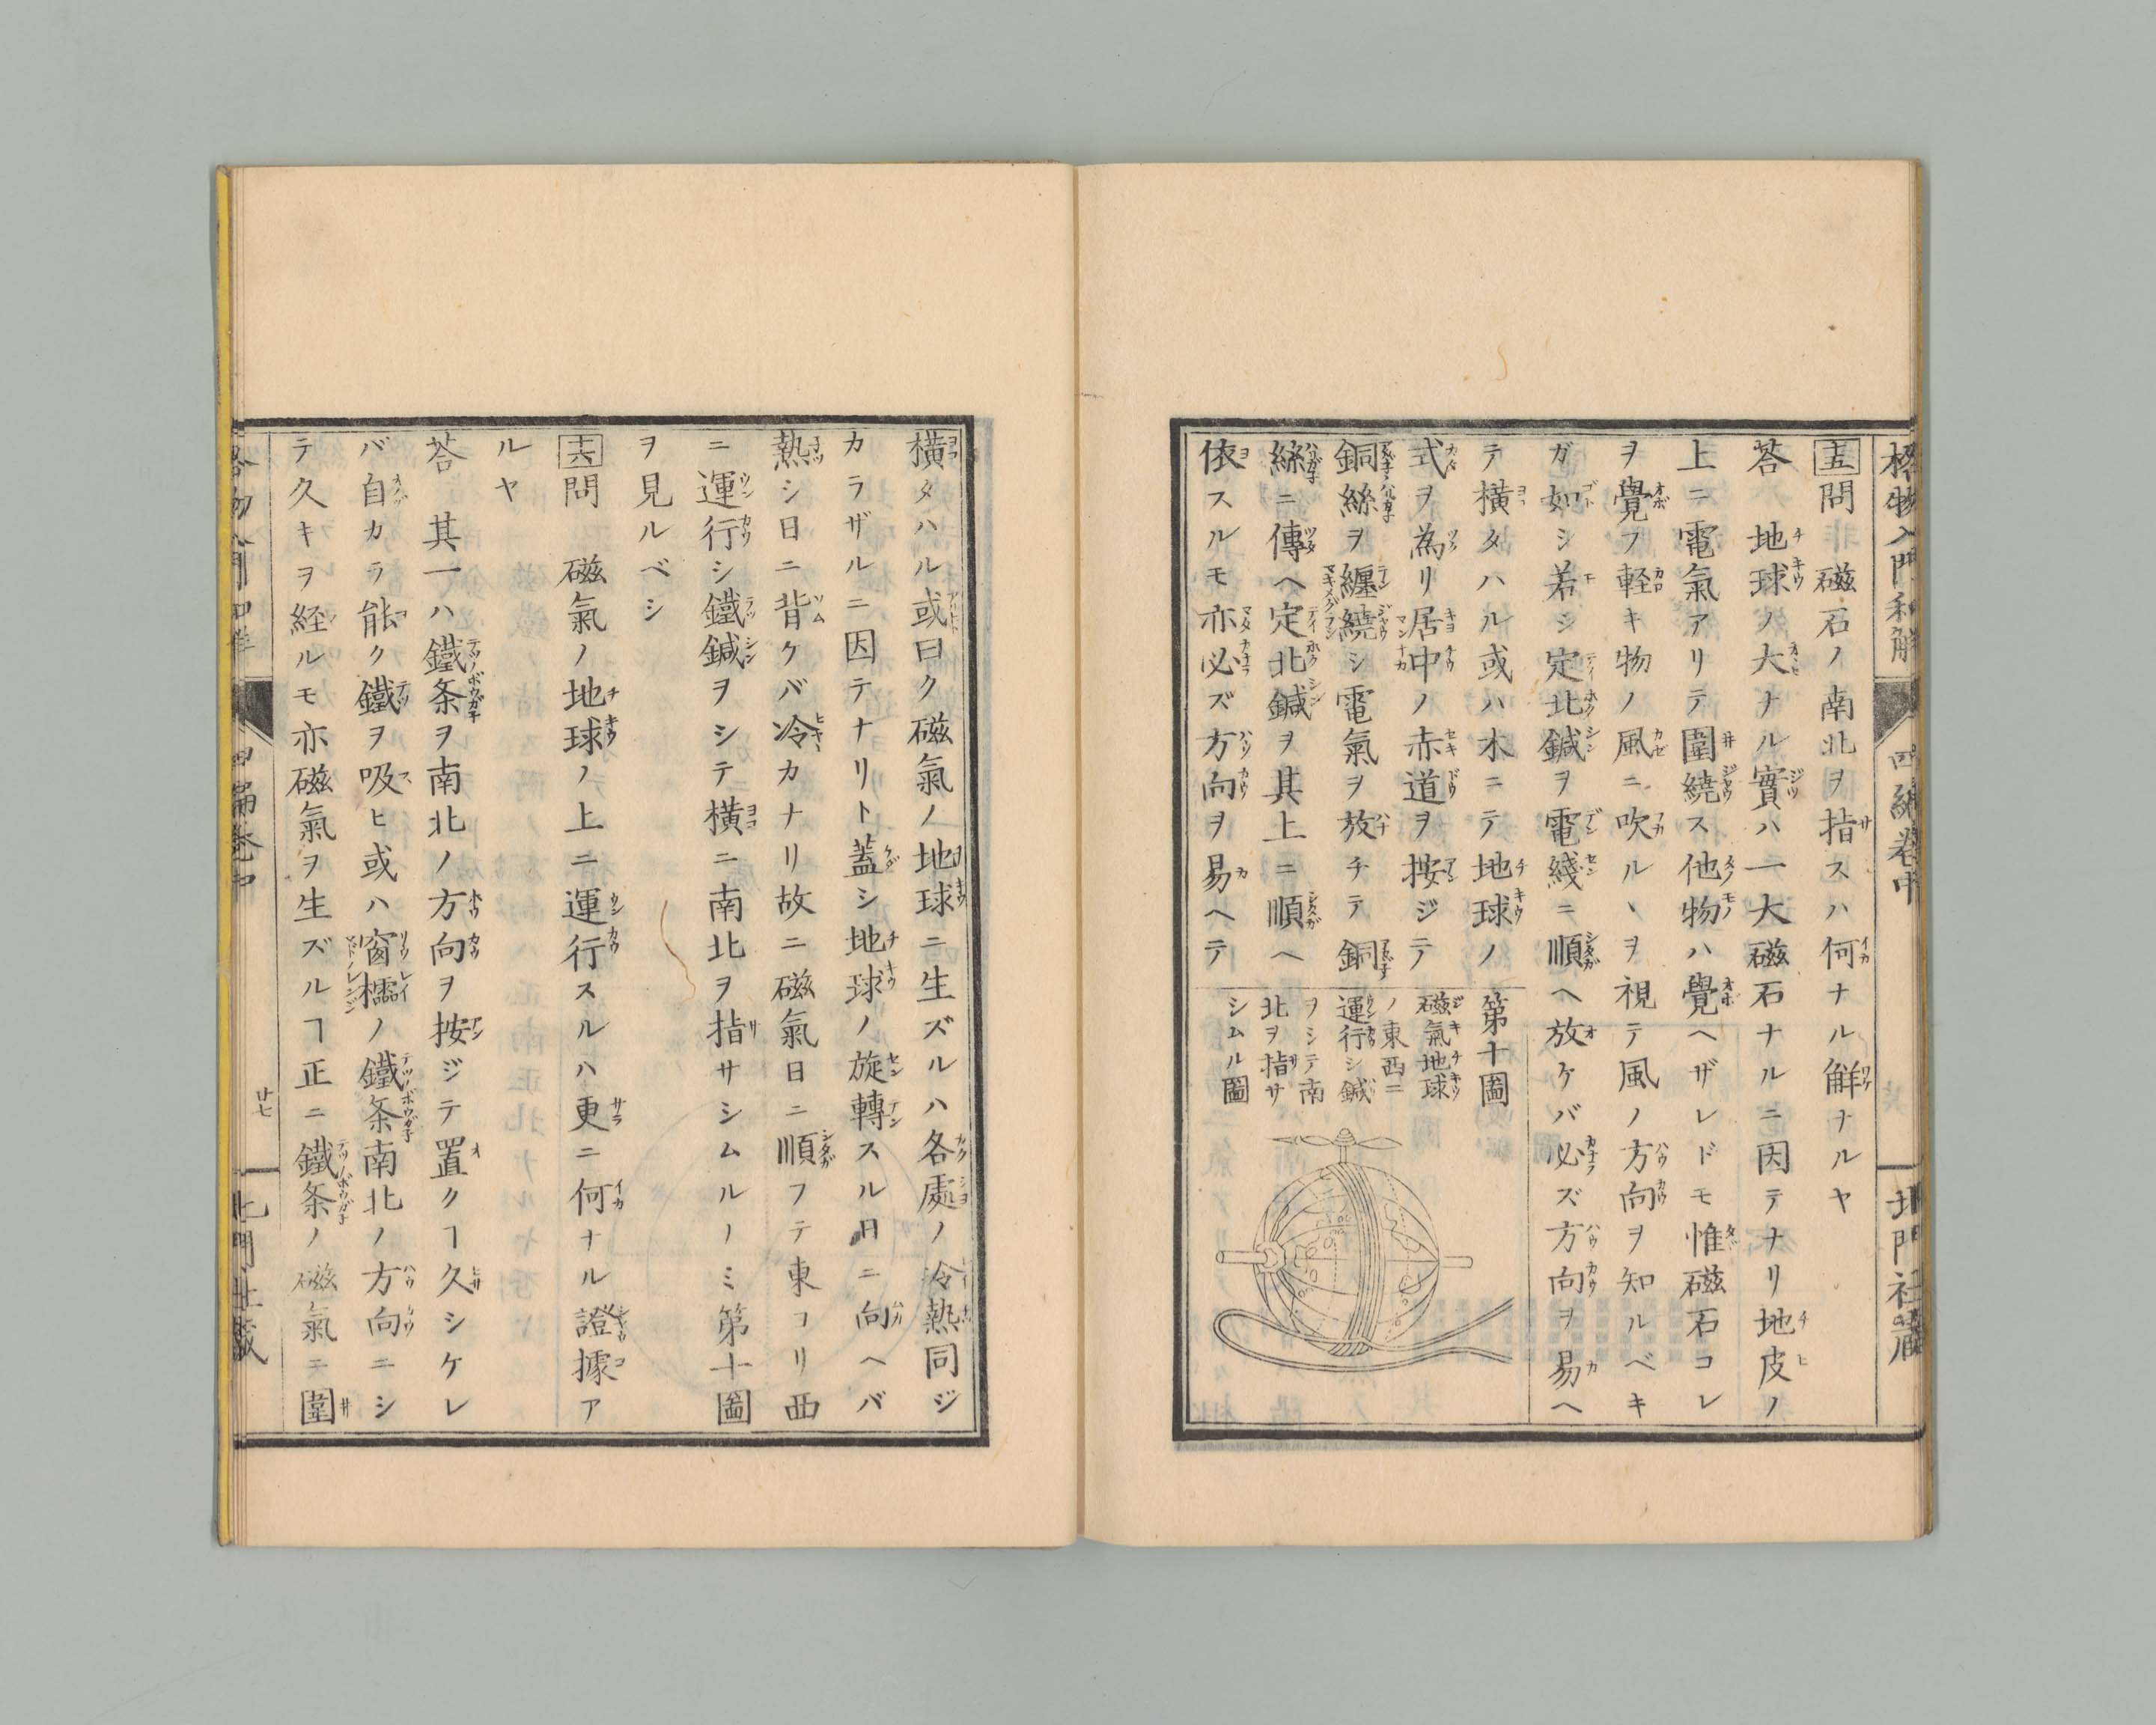 格物入門和解
四編巻中
北門社蔵
十五問 磁石ノ南北ヲ指スハ何ナル解ナルヤ
荅 地球ノ大ナル實ハ一大磁石ナルニ因テナリ地皮ノ
上ニ電氣アリテ圍繞ス他物ハ覺ヘザレドモ惟磁石コレ
ヲ覺フ軽キ物ノ風ニ吹ルヽヲ視テ風ノ方向ヲ知ルベキ
ガ如シ若シ定北鍼ヲ電綫ニ順ヘ放ケバ必ズ方向ヲ易ヘ
テ横タハル或ハ木ニテ地球ノ
式ヲ為リ居中ノ赤道ヲ按ジテ
銅絲ヲ纏繞シ電氣ヲ放チテ銅
絲ニ傳ヘ定北鍼ヲ其上ニ順ヘ
依スルモ亦必ズ方向ヲ易ヘテ
第十圖
磁氣地球
ノ東西ニ
運行シ鍼
ヲシテ南
北ヲ指サ
シムル圖
横タハル或曰ク磁氣ノ地球ニ生ズルハ各處ノ冷熱同ジ
カラザルニ因テナリト蓋シ地球ノ旋轉スル日ニ向ヘバ
熱シ日ニ背ケバ冷カナリ故ニ磁氣日ニ順フテ東ヨリ西
ニ運行シ鐵鍼ヲシテ横ニ南北ヲ指サシムルノミ第十圖
ヲ見ルベシ
十六問 磁氣ノ地球ノ上ニ運行スルハ更ニ何ナル證據ア
ルヤ
荅 其一ハ鐵条ヲ南北ノ方向ヲ按ジテ置クヿ久シケレ
バ自カラ能ク鐵ヲ吸ヒ或ハ窗櫺ノ鐵条南北ノ方向ニシ
テ久キヲ経ルモ亦磁氣ヲ生ズルヿ正ニ鐵条ノ磁氣ニ圍
廿七